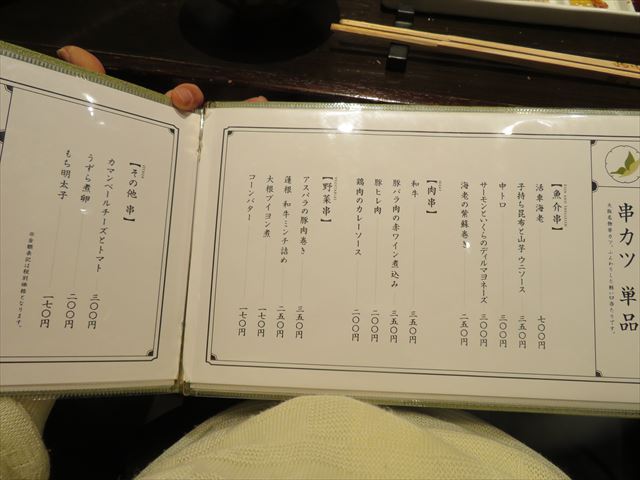 串カツ 単品
大阪名物串カツ。ふんわりした軽い口当たりです。
【魚介串】
活車海老 七〇〇円
子持ち昆布と山芋 ウニソース 三五〇円
中トロ 三〇〇円
サーモンといくらのディルマヨネーズ 三〇〇円
海老の紫蘇巻き 二五〇円
【肉串】
和牛 三五〇円
豚バラ肉の赤ワイン煮込み 三五〇円
豚ヒレ肉 二〇〇円
鶏肉のカレーソース 二〇〇円
【野菜串】
アスパラの豚肉巻き 三五〇円
蓮根 和牛ミンチ詰め 二五〇円
大根ブイヨン煮 一七〇円
コーンバター 一七〇円
【その他 串】
カマンベールチーズとトマト 三〇〇円
うずら煮卵 二〇〇円
もち明太子 一七〇円
※金額表記は税別価格となります。